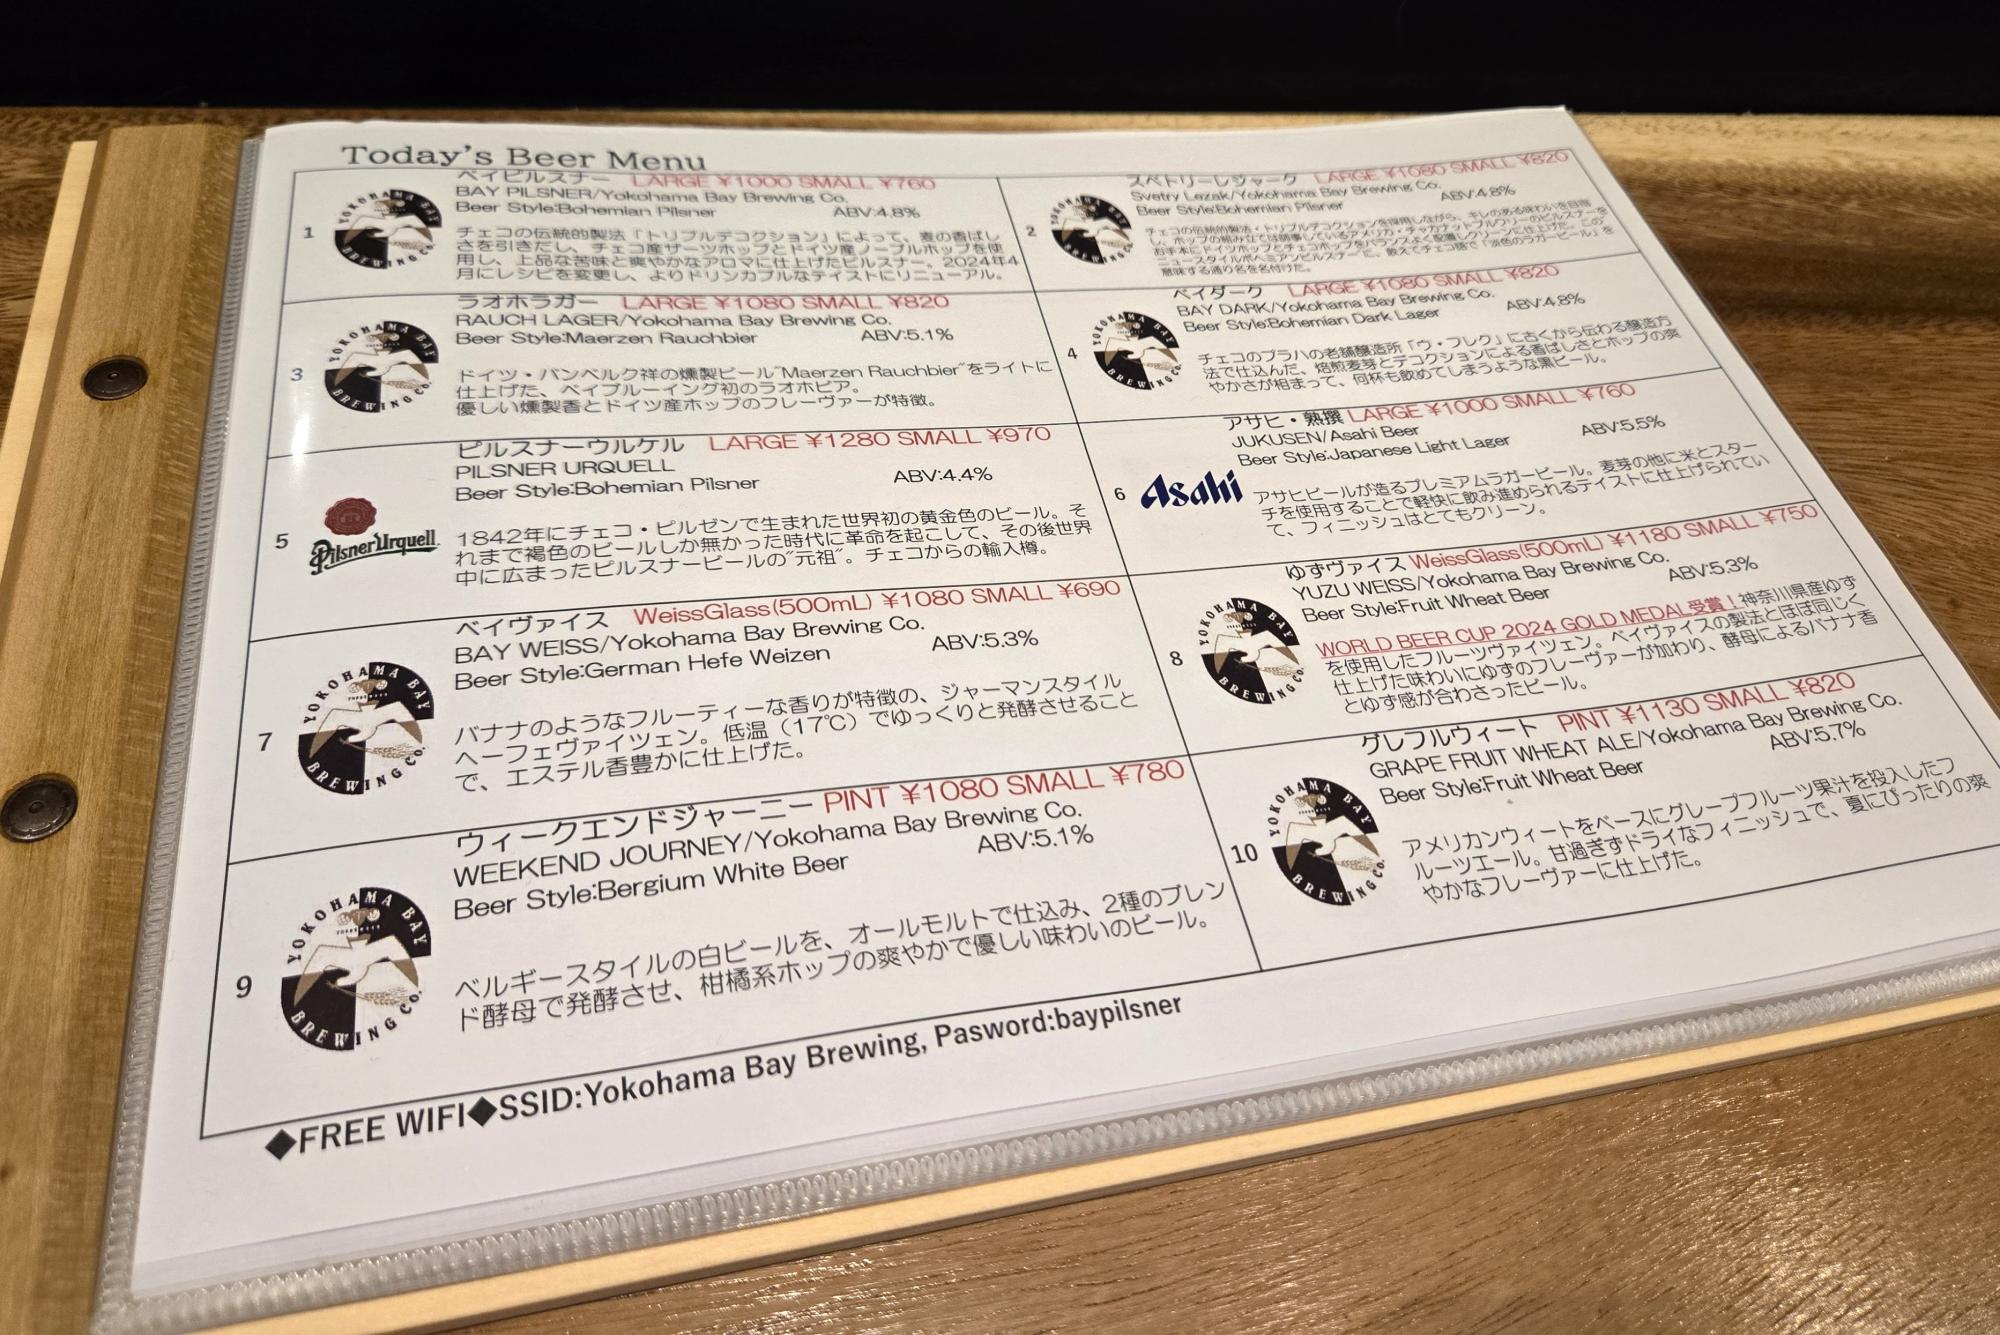 Today's Beer Menu
1
YOKOHAMA BAY BREWING CO.
ベイピルスナー LARGE ¥1000 SMALL ¥760
BAY PILSNER/Yokohama Bay Brewing Co.
Beer Style:Bohemian Pilsner ABV:4.8%
チェコの伝統的製法「トリプルデコクション」によって、麦の香ばし
さを引きだし、チェコ産ザーツホップとドイツ産ノーブルホップを使
用し、上品な苦味と爽やかなアロマに仕上げたピルスナー。2024年4
月にレシピを変更し、よりドリンカブルなテイストにリニューアル。
2
YOKOHAMA BAY BREWING CO.
スベトリーレジャーク LARGE ¥1080 SMALL ¥820
Svetry Lezak/Yokohama Bay Brewing Co.
Beer Style:Bohemian Pilsner ABV:4.8%
チェコの伝統的製法・トリプルデコクションを採用しながら、キレのある味わいを目指
し、ホップの組み立ては師事しているアメリカ・チャカナットブルワリーのピルスナーを
お手本にドイツホップとチェコホップをバランスよく配置しクリーンに仕上げた。この
ニュースタイルボヘミアンピルスナーに、敢えてチェコ語で「淡色のラガービール」を
意味する通り名を名付けた。
3
YOKOHAMA BAY BREWING CO.
ラオホラガー LARGE ¥1080 SMALL ¥820
RAUCH LAGER/Yokohama Bay Brewing Co.
Beer Style:Maerzen Rauchbier ABV:5.1%
ドイツ・バンベルク祥の燻製ビール"Maerzen Rauchbier"をライトに
仕上げた、ベイブルーイング初のラオホビア。
優しい燻製香とドイツ産ホップのフレーヴァーが特徴。
4
YOKOHAMA BAY BREWING CO.
ベイダーク LARGE ¥1080 SMALL ¥820
BAY DARK/Yokohama Bay Brewing Co.
Beer Style:Bohemian Dark Lager ABV:4.8%
チェコのプラハの老舗醸造所「ウ・フレク」に古くから伝わる醸造方
法で仕込んだ、焙煎麦芽とデコクションによる香ばしさとホップの爽
やかさが相まって、何杯も飲めてしまうような黒ビール。
5
Pilsner Urquell
ピルスナーウルケル LARGE ¥1280 SMALL ¥970
PILSNER URQUELL
Beer Style:Bohemian Pilsner ABV:4.4%
1842年にチェコ・ピルゼンで生まれた世界初の黄金色のビール。そ
れまで褐色のビールしか無かった時代に革命を起こして、その後世界
中に広まったピルスナービールの"元祖"。チェコからの輸入樽。
6
Asahi
アサヒ・熟撰 LARGE ¥1000 SMALL ¥760
JUKUSEN/Asahi Beer
Beer Style:Japanese Light Lager ABV:5.5%
アサヒビールが造るプレミアムラガービール。麦芽の他に米とスター
チを使用することで軽快に飲み進められるテイストに仕上げられてい
て、フィニッシュはとてもクリーン。
7
YOKOHAMA BAY BREWING CO.
ベイヴァイス WeissGlass(500mL) ¥1080 SMALL ¥690
BAY WEISS/Yokohama Bay Brewing Co.
Beer Style:German Hefe Weizen ABV:5.3%
バナナのようなフルーティーな香りが特徴の、ジャーマンスタイル
ヘーフェヴァイツェン。低温（17℃）でゆっくりと発酵させること
で、エステル香豊かに仕上げた。
8
YOKOHAMA BAY BREWING CO.
ゆずヴァイス WeissGlass(500mL) ¥1180 SMALL ¥750
YUZU WEISS/Yokohama Bay Brewing Co.
Beer Style:Fruit Wheat Beer ABV:5.3%
WORLD BEER CUP 2024 GOLD MEDAL受賞！神奈川県産ゆず
を使用したフルーツヴァイツェン。ベイヴァイスの製法とほぼ同じく
仕上げた味わいにゆずのフレーヴァーが加わり、酵母によるバナナ香
とゆず感が合わさったビール。
9
YOKOHAMA BAY BREWING CO.
ウィークエンドジャーニー PINT ¥1080 SMALL ¥780
WEEKEND JOURNEY/Yokohama Bay Brewing Co.
Beer Style:Bergium White Beer ABV:5.1%
ベルギースタイルの白ビールを、オールモルトで仕込み、2種のブレン
ド酵母で発酵させ、柑橘系ホップの爽やかで優しい味わいのビール。
10
YOKOHAMA BAY BREWING CO.
グレフルウィート PINT ¥1130 SMALL ¥820
GRAPE FRUIT WHEAT ALE/Yokohama Bay Brewing Co.
Beer Style:Fruit Wheat Beer ABV:5.7%
アメリカンウィートをベースにグレープフルーツ果汁を投入したフ
ルーツエール。甘過ぎずドライなフィニッシュで、夏にぴったりの爽
やかなフレーヴァーに仕上げた。
◆FREE WIFI◆SSID:Yokohama Bay Brewing, Pasword:baypilsner